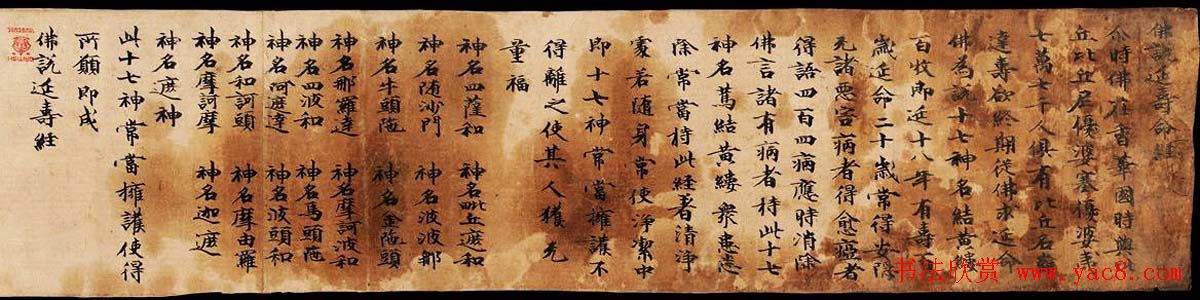 佛說延壽命經
尒時佛在香華國時與
丘比丘尼優婆塞優婆夷
七萬七千人俱有比丘名
達壽欲終期從佛求延命
佛為說十七神名結黃縷
百牧即延十八年有壽
歲延命二十歲常得安隱
无諸惡害病者得愈瘂者
得語四百四病應時消除
佛言諸有病者持此十七
神名萬結黃縷衆患悉
除常當持此經著清淨
處若随身常使淨潔中
即十七神常當擁護不
得離之使其人獲九
量福
神名四薩和 神名毗丘遮和
神名随沙門 神名波波那
神名牛頭陁 神名金陁頭
神名那羅達 神名摩訶波和
神名四波和 神名馬頭陁
神名阿遮達 神名波頭和
神名和訶頭 神名摩由羅
神名摩訶摩 神名迦遮
神名遮神
此十七神常當擁護使得
所願即成
佛說延壽經
书法欣赏 www.yac8.com